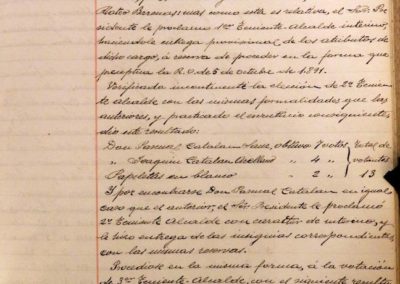 Pedro Berenas; mas como esta es relativa, el Sr. Pre-
sidente le proclamó 1er Teniente-Alcalde interino,
haciéndole entrega provisional de los atributos de
dicho cargo, á reserva de proceder en la forma que
preceptua la R. O. de 5 de octubre de 1891.
Verificada incontinente la elección de 2º Tenien-
te alcalde con las mismas formalidades que las
anteriores, y practicado el escrutinio consiguiente,
dió este resultado:
Don Pascual Catalan Sanz, obtuvo 7 votos total de
" Joaquin Catalan " 4 " votantes
Papeletas en blanco " 2 " 13
Y por encontrarse Don Pascual Catalan en igual
caso que el anterior, el Sr. Presidente le proclamó
2º Teniente Alcalde con caracter de interino, y
le hizo entrega de las insignias correspondientes
con las mismas reservas.
Procediose en la misma forma, á la votación
de 3er Teniente-Alcalde, con el siguiente resulta